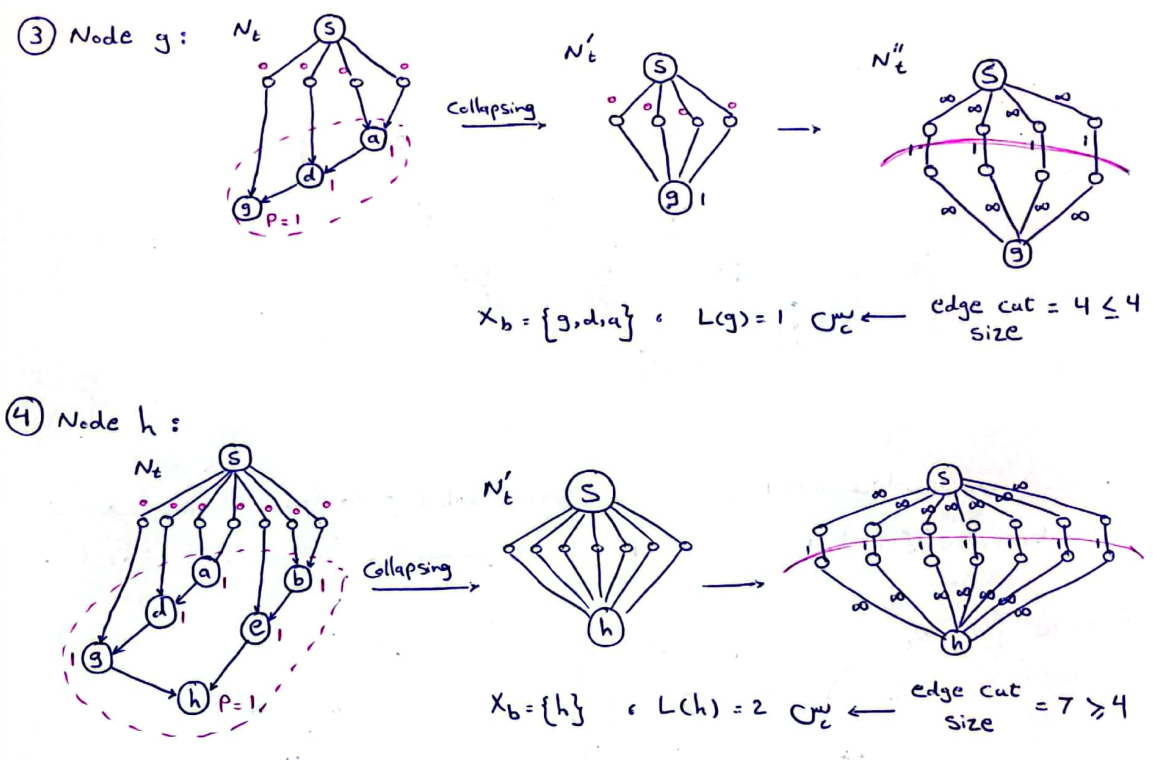 ③ Node g:
N_t
S
o o o o
a 1
d 1
g P=1
Collapsing
N_t'
S
o o o o
g 1
N_t''
S
∞ ∞ ∞ ∞
1 1 1 1
∞ ∞ ∞ ∞
g
X_b = {g,d,a} ، L(g) = 1 پس ← edge cut size = 4 ≤ 4
④ Node h:
N_t
S
o o o o o o o
a 1 b 1
d 1 e 1
1 g
h P=1
Collapsing
N_t'
S
h
S
∞ ∞ ∞ ∞ ∞ ∞ ∞
1 1 1 1 1 1 1
∞ ∞ ∞ ∞ ∞ ∞ ∞
h
X_b = {h} ، L(h) = 2 پس ← edge cut size = 7 ≥ 4